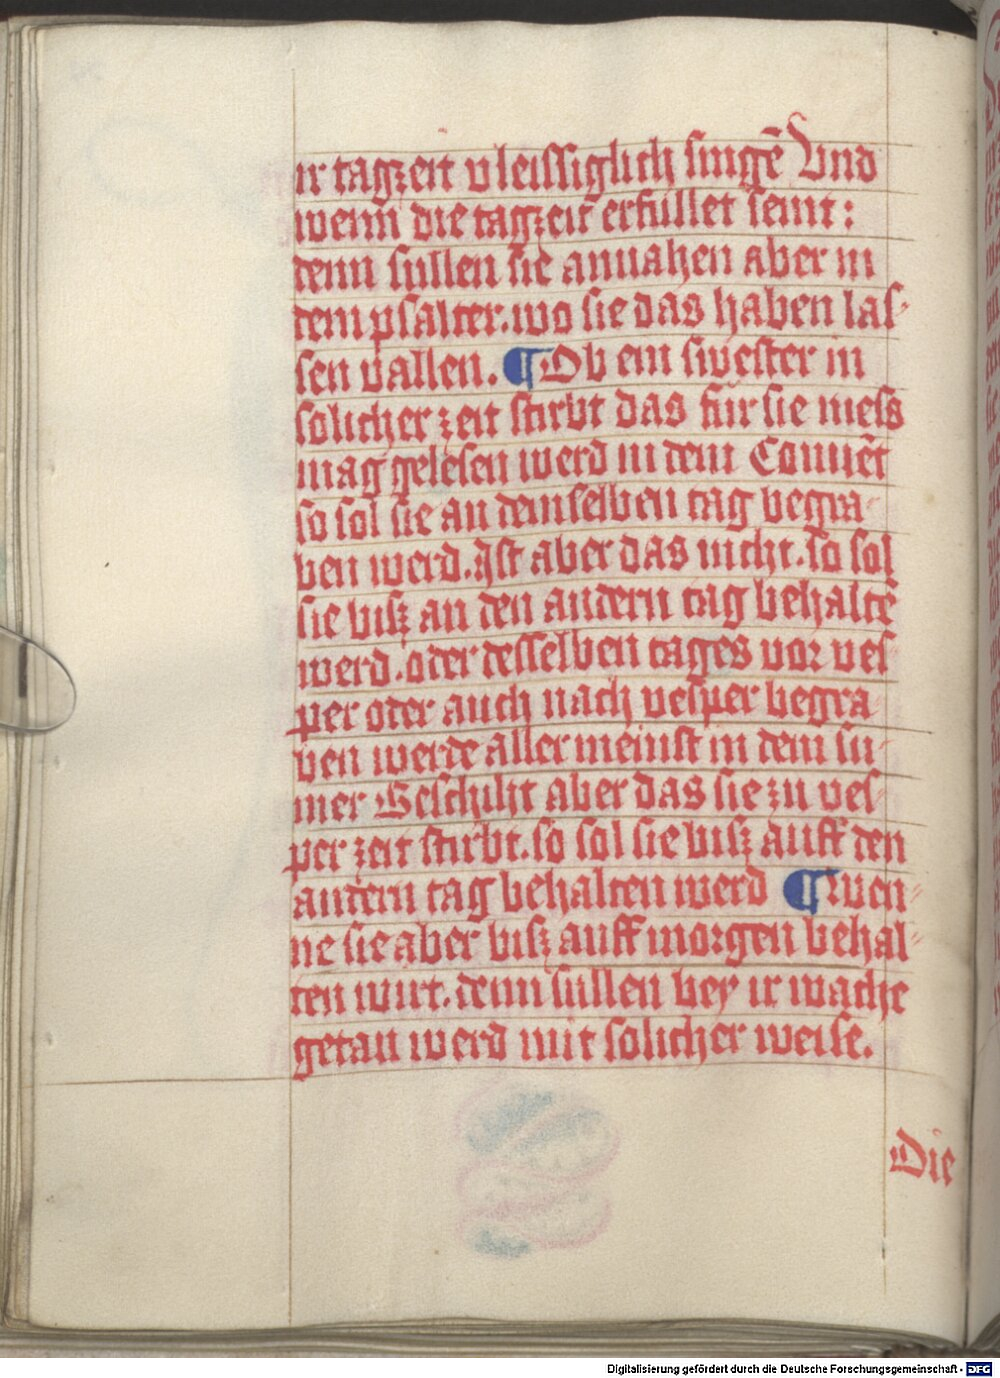 ir tagzeit vleissiglich singē Vnd
wenn die tagzeit erfullet seint:
denn sullen sie annahen aber in
dem psalter. wo sie das haben las-
sen vallen. ¶ Ob ein swester in
solicher zeit stirbt das fur sie mess
mag gelesen werd in dem Conuēt
so sol sie an demselben tag begra-
ben werd. Ist aber das nicht. so sol
sie bisz an den andern tag behaltē
werd. oder desselben tages vor ves-
per oder auch nach vesper begra-
ben werde aller meinst in dem su-
mer Geschiht aber das sie zu ves-
per zeit stirbt. so sol sie bisz auff den
andern tag behalten werd ¶ wen-
ne sie aber bisz auff morgen behal-
ten wirt. denn sullen bey ir wache
getan werd mit solicher weise.
Die
Digitalisierung gefördert durch die Deutsche Forschungsgemeinschaft - DFG